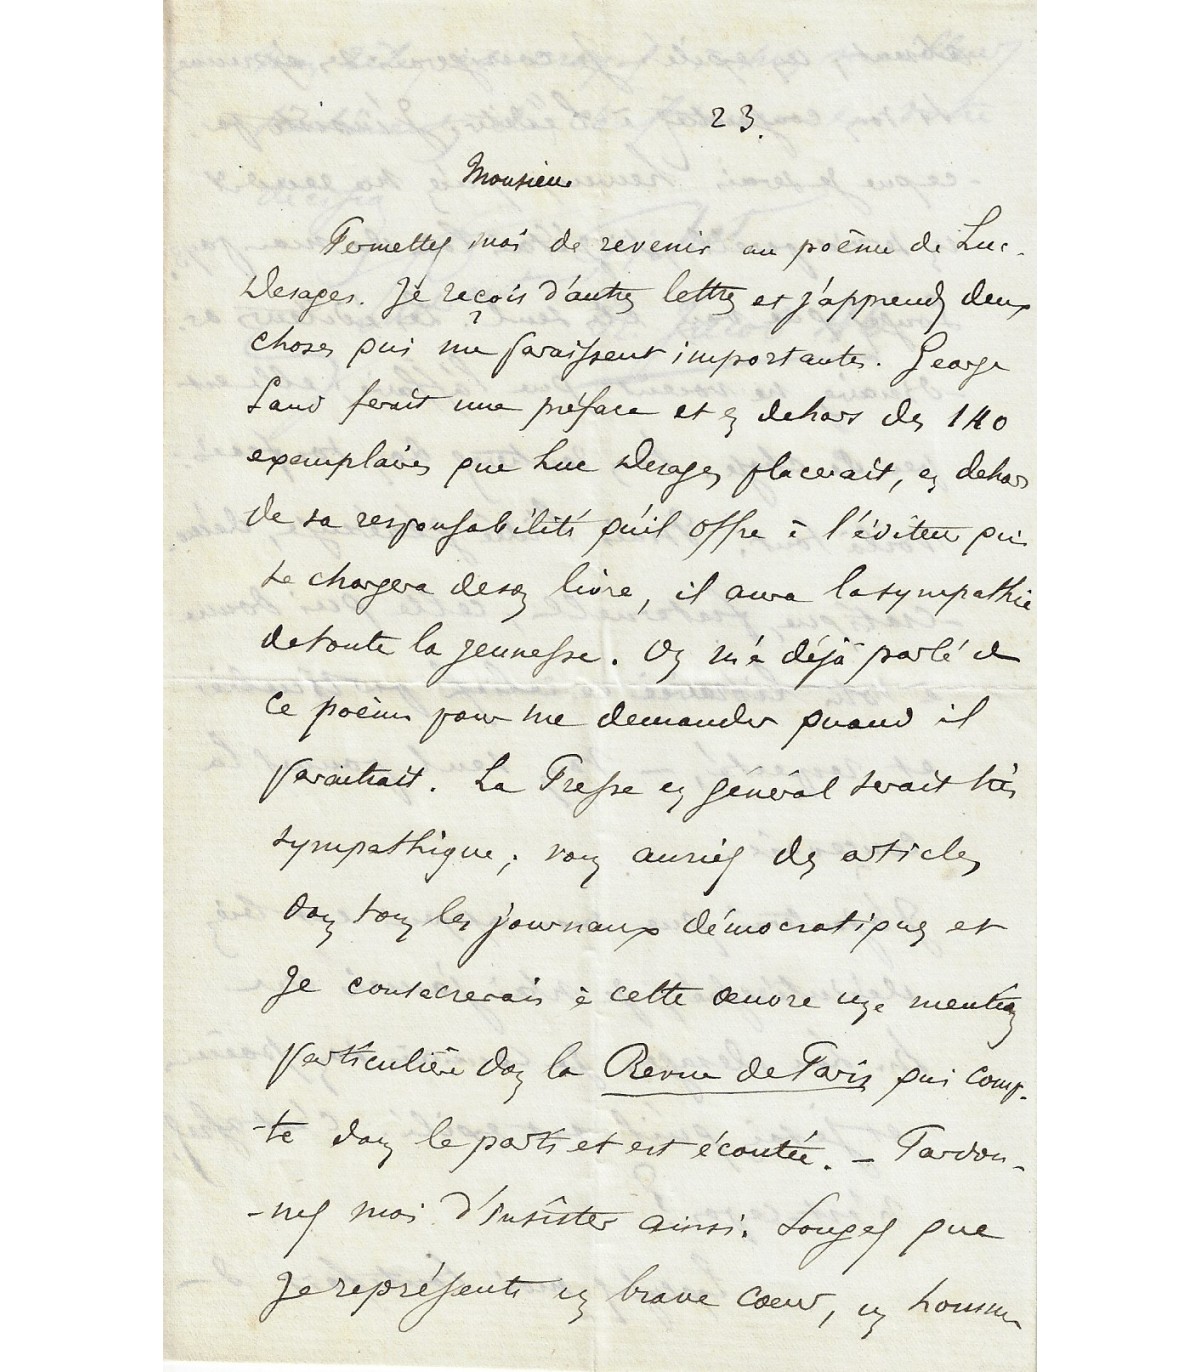 23.
Monsieur
Permettez moi de revenir au poëme de Luc-
Desages. Je reçois d'autres lettres et j'apprends deux
choses qui me paraissent importantes. George
Sand ferait une préface et en dehors des 140
exemplaires que Luc Desages placerait, en dehors
de sa responsabilité qu'il offre à l'éditeur qui
se chargera de son livre, il aura la sympathie
de toute la jeunesse. On m'a déjà parlé de
ce poëme pour me demander quand il
paraitrait. La Presse en général serait très
sympathique ; vous auriez des articles
dans tous les journaux démocratiques et
je consacrerais à cette œuvre une mention
particulière dans la Revue de Paris qui comp-
-te dans le parti et est écoutée. — Pardon-
-nez moi d'insister ainsi. Songez que
je représente un brave cœur, un homme